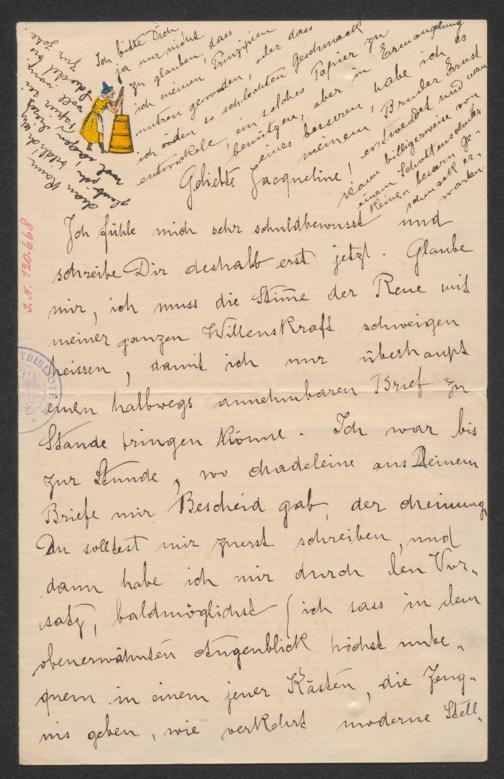 Ich bitte Dich
ja nur nicht
zu glauben, dass
ich meinen Prinzipien
untreu geworden, oder dass
ich einen so schlechten Geschmack
entwickele, ein solches Papier zu
benützen, aber in Ermanglung
eines besseren, habe ich es
meinem Bruder Ernst
entwendet und man
kann billigerweise von
einem
keinen besseren Ge-
schmack er-
warten.
Geliebte Jacqueline!
Ich fühle mich sehr schuldbewusst und
schreibe Dir deshalb erst jetzt. Glaube
mir, ich muss die Stimme der Reue mit
meiner ganzen Willenskraft schweigen
heissen, damit ich nur überhaupt
einen halbwegs annehmbaren Brief zu
Stande bringen könne. Ich war bis
zur Stunde, wo Madeleine aus Deinem
Briefe mir Bescheid gab, der Meinung,
Du solltest mir zuerst schreiben, und
dann habe ich mir durch den Vor-
satz, baldmöglichst (ich sass in dem
obenerwähnten Augenblick höchst unbe-
quem in einem jener Kästen, die Zeug-
nis geben, wie verkehrt moderne Stell-
J.N. 120.668